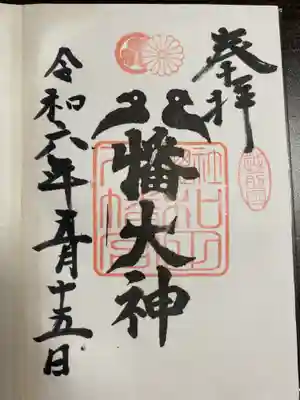 奉拝
八幡大神
令和六年五月十五日